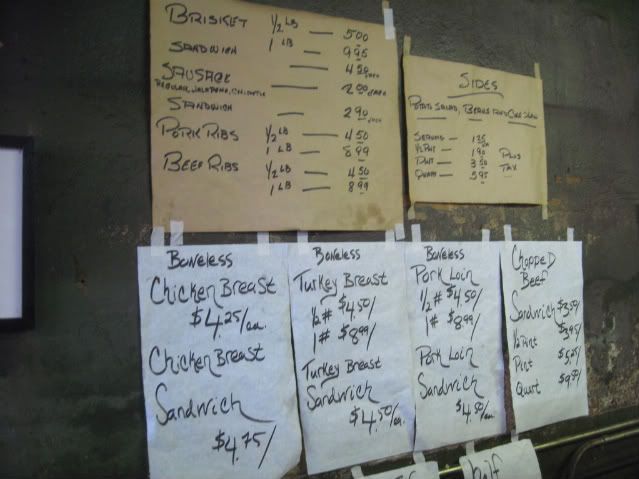 BRISKET ½ LB — 5 00
1 LB — 9 95
SANDWICH — 4 50 EACH
SAUSAGE — 2 00 EACH
REGULAR, JALAPENO,
SANDWICH — 2 90 EACH
PORK RIBS ½ LB — 4 50
1 LB — 8 99
BEEF RIBS ½ LB — 4 50
1 LB — 8 99
SIDES
POTATO SALAD, BEANS AND COLE SLAW
SERVING — 1 25
½ PINT — 1 90
PINT — 3 50
QUART — 5 95
PLUS
TAX
Boneless
Chicken Breast
$4.25/ea.
Chicken Breast
Sandwich
$4.75/
Boneless
Turkey Breast
½ # $4.50/
1 # $8.99/
Turkey Breast
Sandwich
$4.50/ea.
Boneless
Pork Loin
½ # $4.50/
1 # $8.99/
Pork Loin
Sandwich
$4.50/ea.
Chopped
Beef
Sandwich $3.50/
½ Pint $3.95/
Pint $5.25/
Quart $9.50/
half